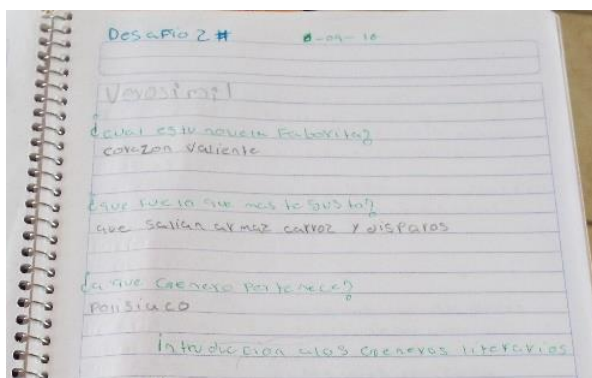 Desafio 2 #
-09-18
Verosimil
¿cual es tu novela Faborita?
corazon valiente
¿que fue lo que mas te gusto?
que salian armaz carroz y disparos
¿a que Genero pertenece?
Polisiaco
introduccion a los Generos literarios